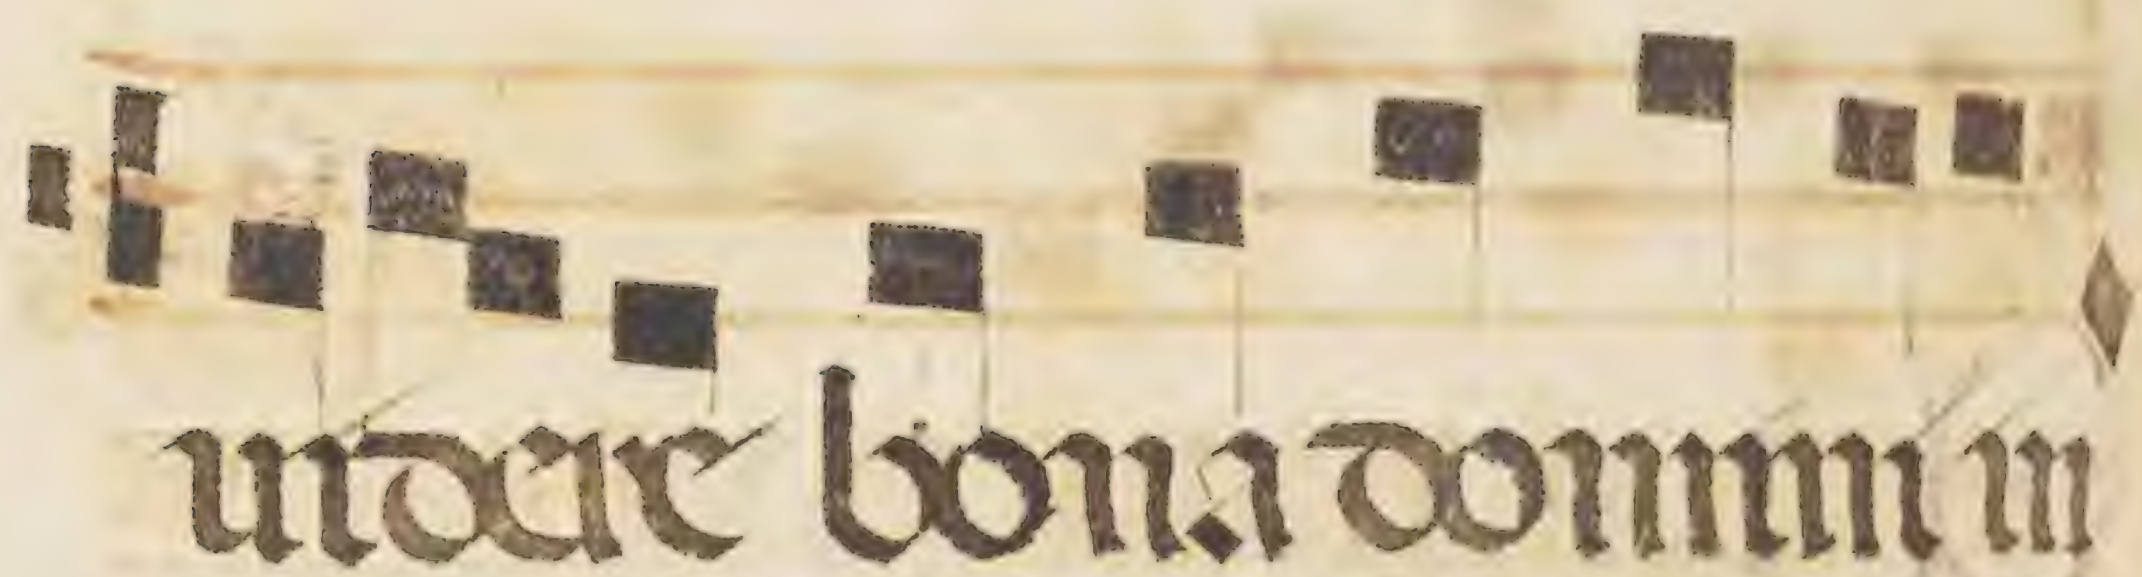 uidere bona domini in